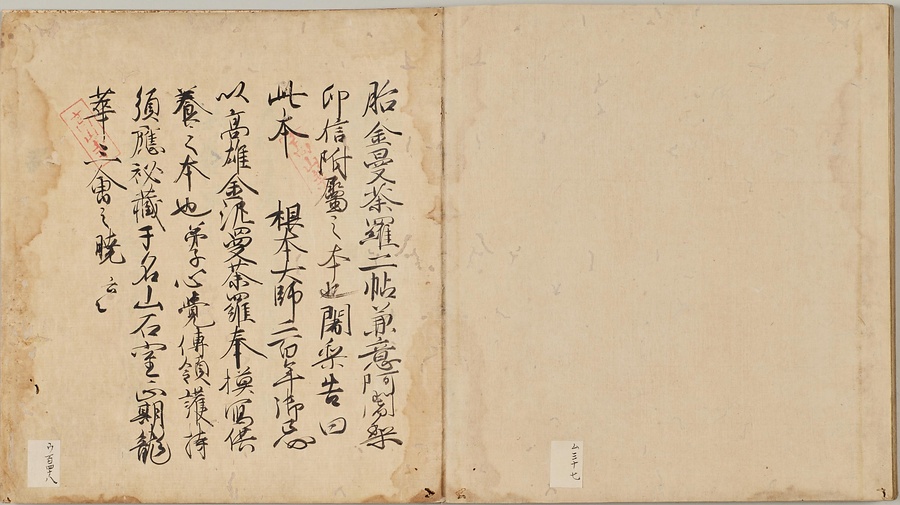 胎金曼荼羅二帖兼意阿闍梨
印信附屬之本也闍梨告曰
此本 根本大師二百年御忌
以高雄金泥曼荼羅奉模寫供
養之本也弟子心覺傳領護持
須應祕藏于名山石室正期龍
華三會之曉云々
六百四十八
ム三十七